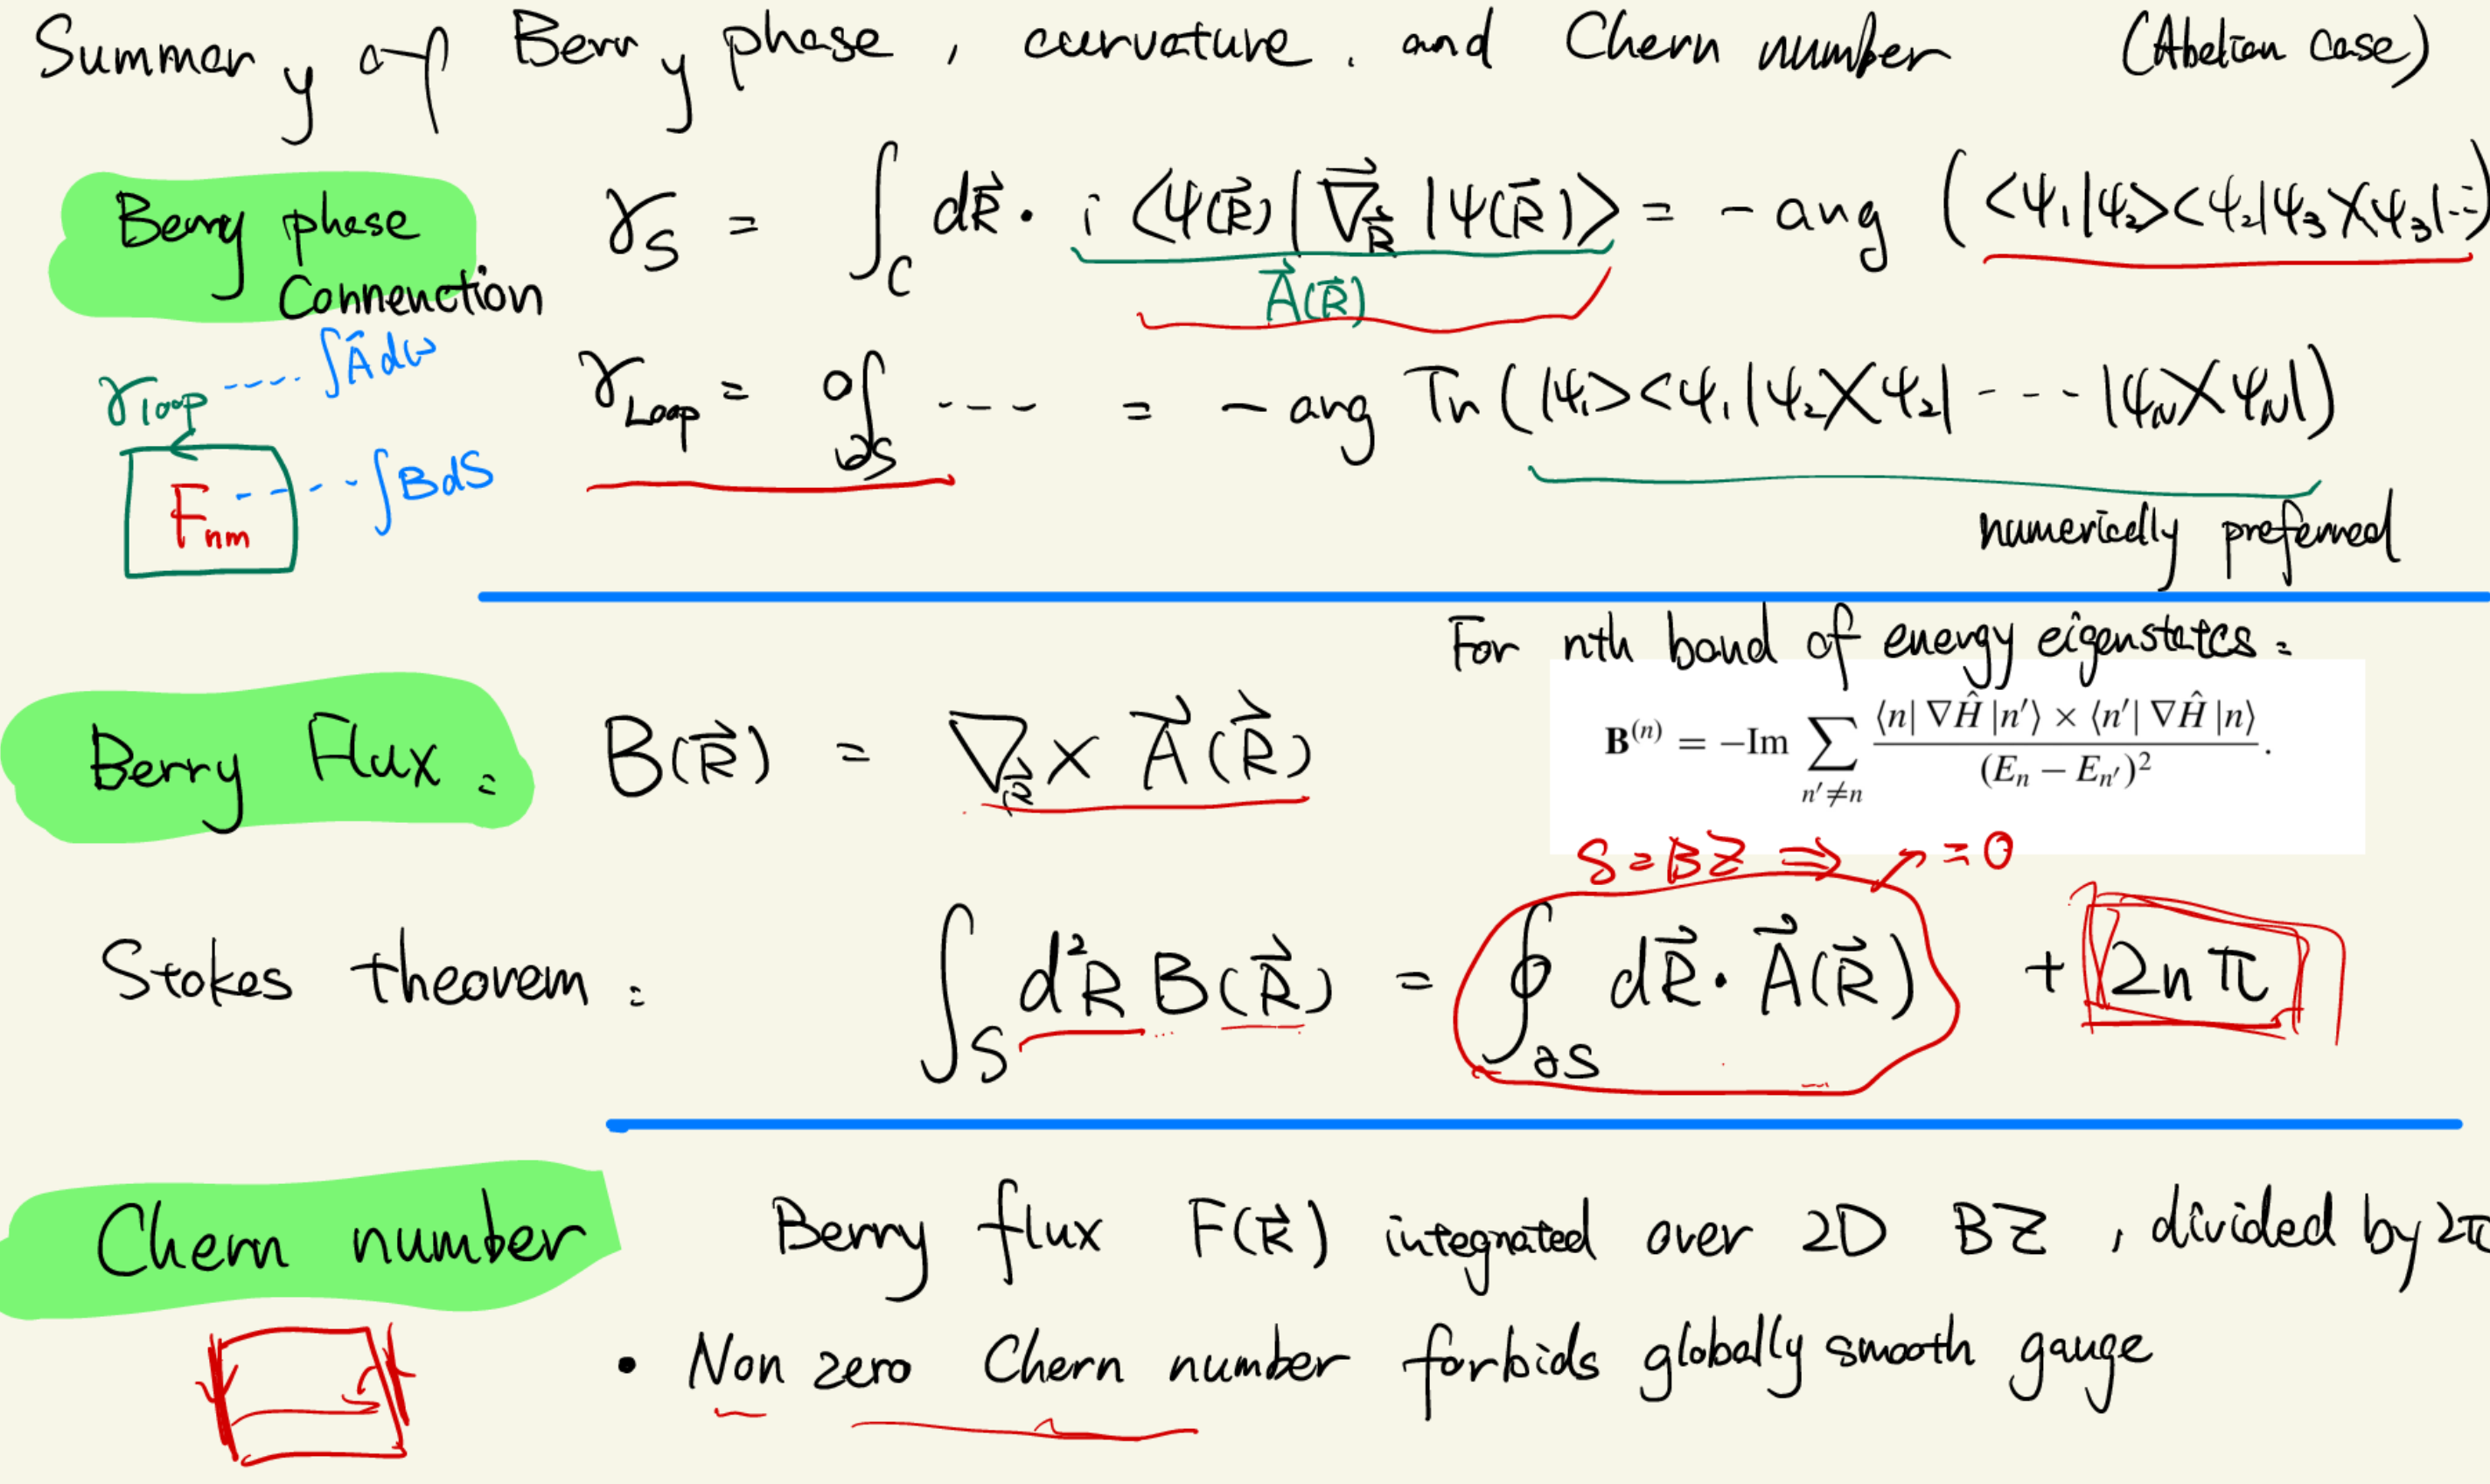 Summary of Berry phase, curvature, and Chern number (Abelian case)
Berry phase γ_S = ∫_C dR⃗ · i ⟨Ψ(R⃗)| ∇⃗_R⃗ |Ψ(R⃗)⟩ = - arg (⟨Ψ₁|Ψ₂⟩⟨Ψ₂|Ψ₃⟩⟨Ψ₃|...)
Connenction A⃗(R⃗)
γ_loop ---- ∫A⃗dω
γ_Loop = ∮_∂S --- = - arg Tr (|Ψ₁⟩⟨Ψ₁|Ψ₂⟩⟨Ψ₂| ---- |Ψ_N⟩⟨Ψ_N|)
F_nm ---- ∫BdS
numerically preferred
For nth band of energy eigenstates:
Berry Flux: B(R⃗) = ∇_R⃗ × A⃗(R⃗)
B^(n) = −Im ∑_{n′≠n} ⟨n| ∇Ĥ |n′⟩ × ⟨n′| ∇Ĥ |n⟩ / (E_n − E_n′)².
S = BZ ⇒ ↗ = 0
Stokes theorem: ∫_S d²R B(R⃗) = ∮_∂S dR⃗ · A⃗(R⃗) + 2nπ
Chern number Berry flux F(k⃗) integrated over 2D BZ, divided by 2π
• Non zero Chern number forbids globally smooth gauge